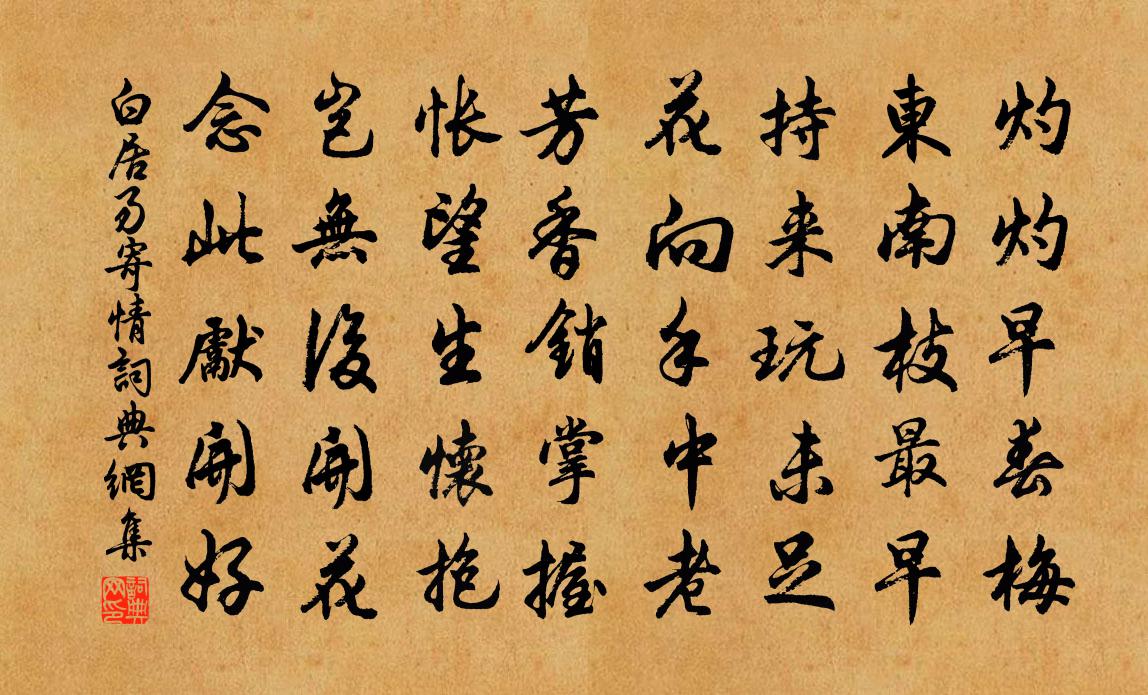 灼灼早春梅
東南枝最早
持来玩未足
花向手中老
芳香銷掌握
悵望生懷抱
豈無後開花
念此獻開好
白居易寄情詞典網集
詞典网印